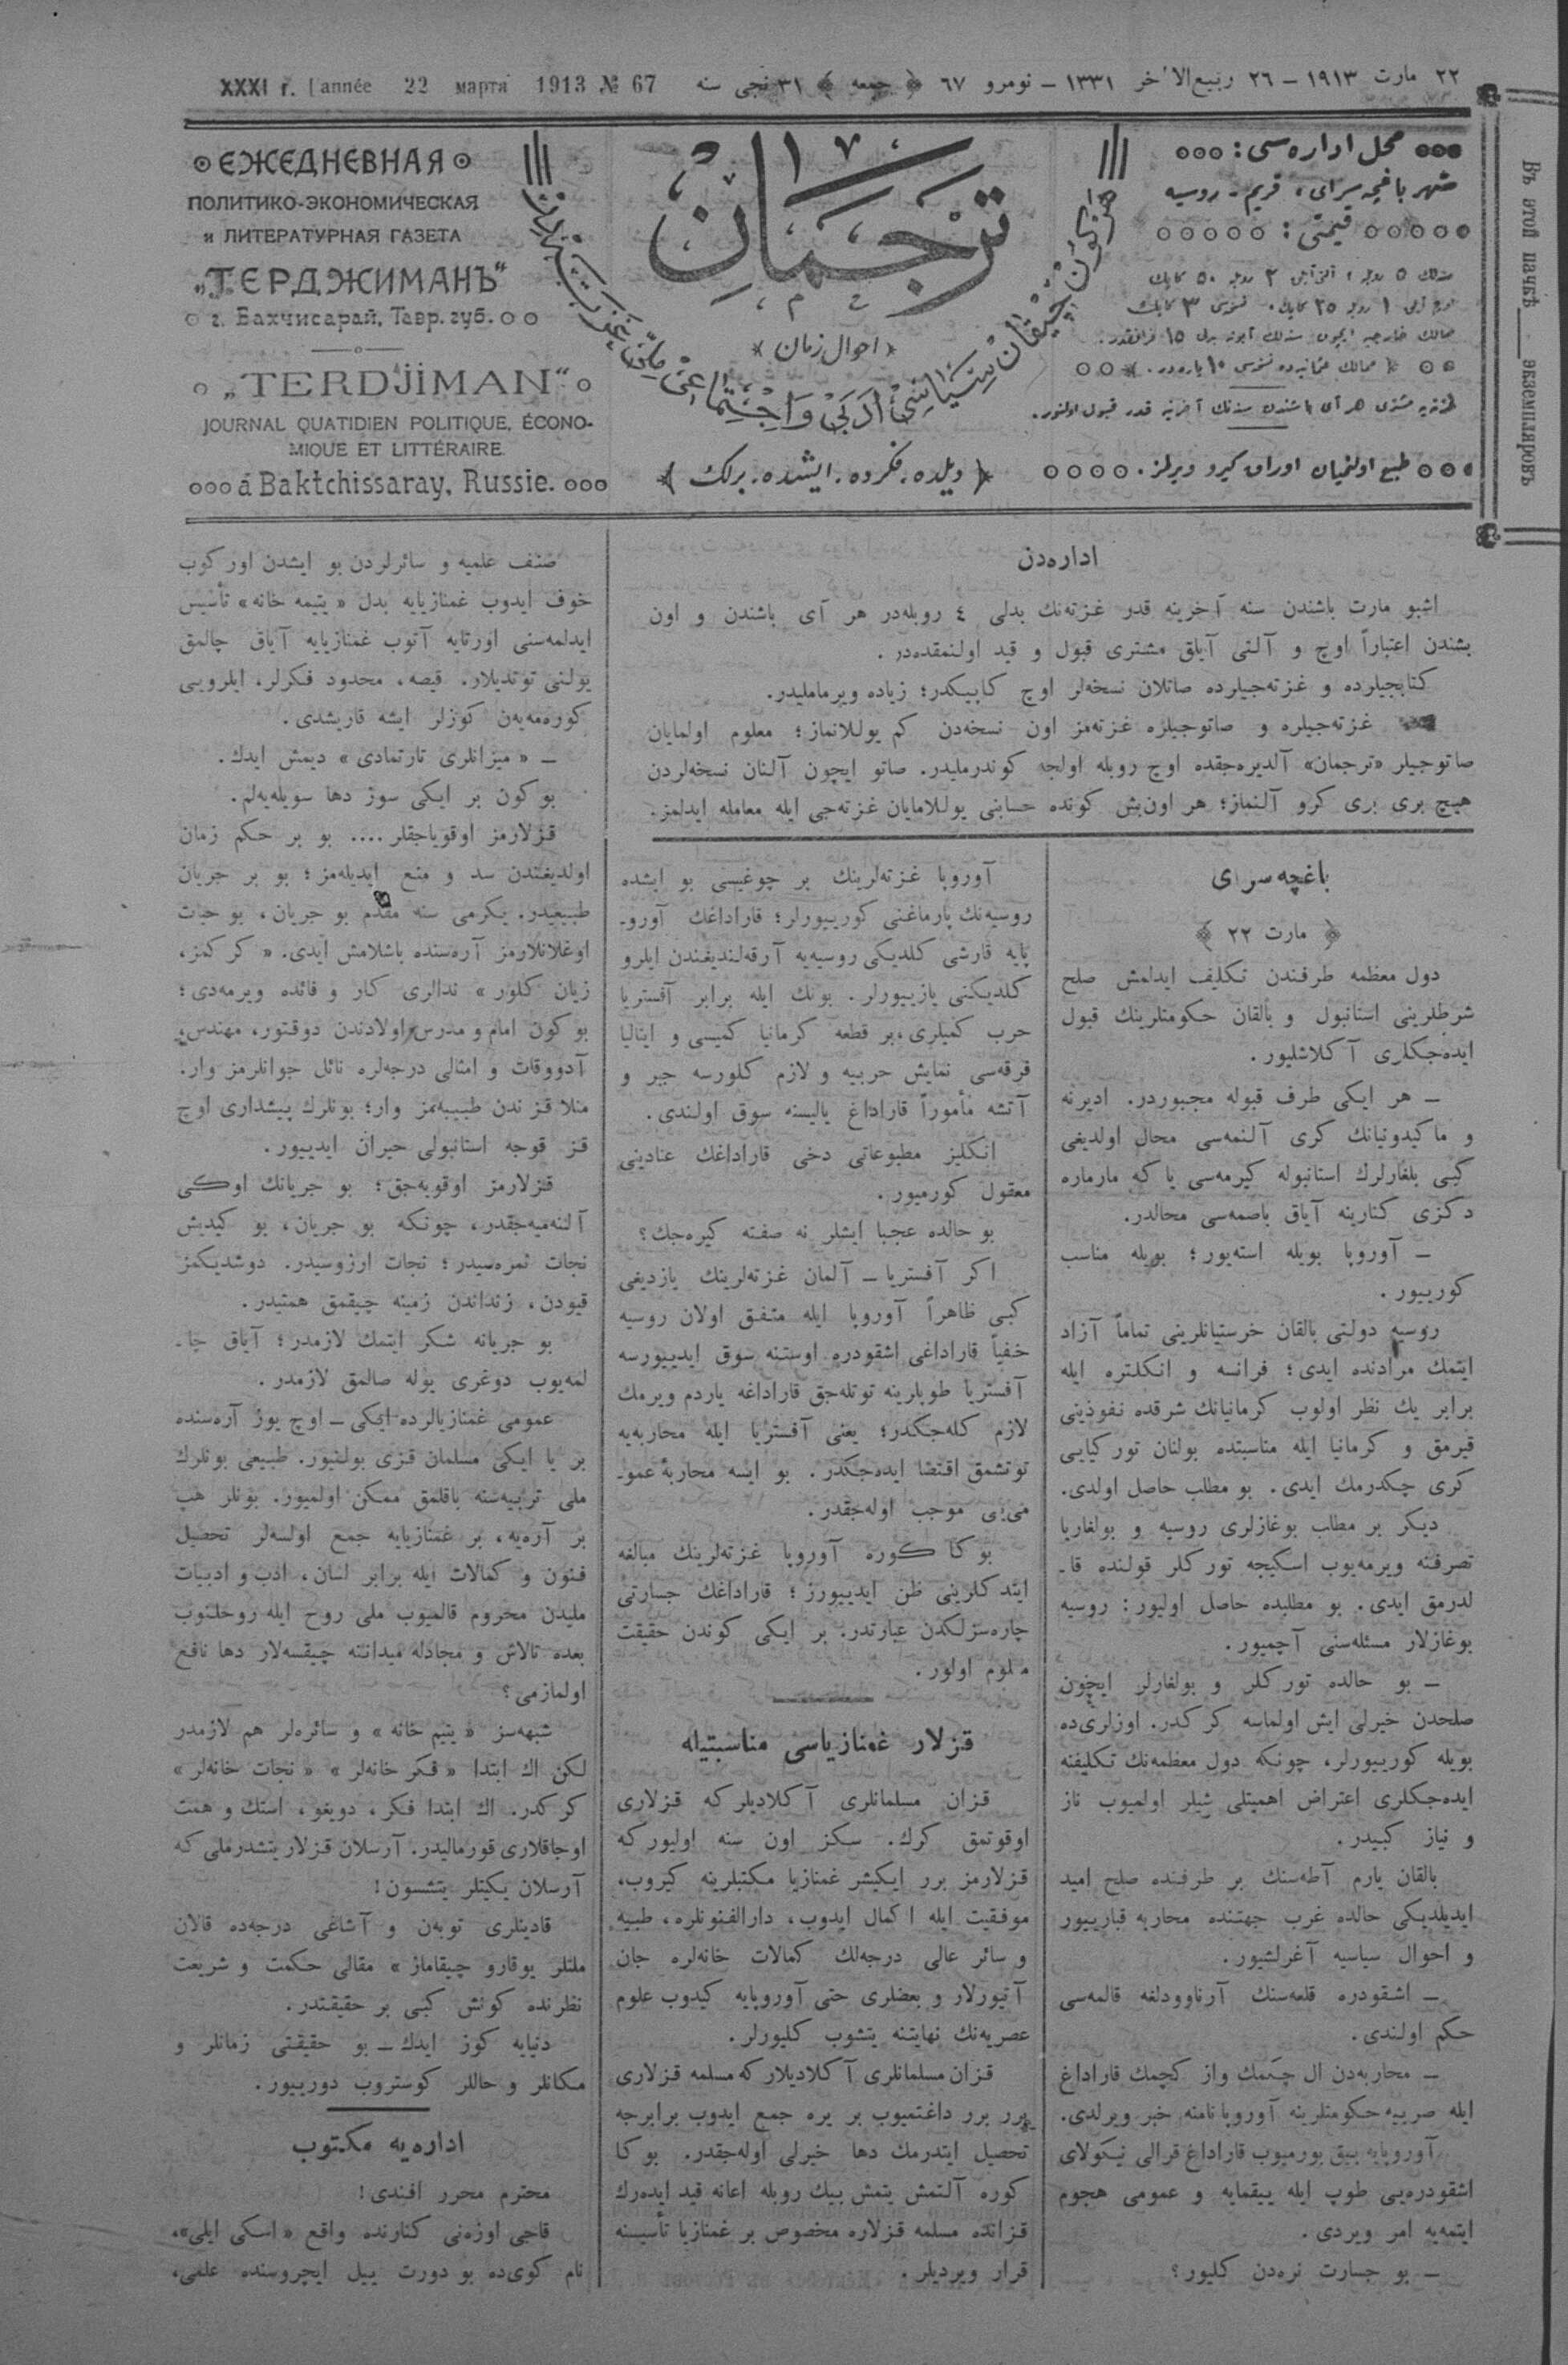 ٢٢ مارت ١٩١٣ – ٢٦ ربیع‌الآخر ١٣٣١ – نومرو ٦٧ ﴿ جمعه ﴾ ٣١ نجی سنه
XXXI г. l année 22 марта 1913 № 67
Въ этой пачкѣ ___ экземпляровъ
محل اداره‌سی:
شهر باغچه‌سرای، قریم - روسیه
قیمتی:
سنه‌لك ٥ روبله ؛ آلتی آیلق ٢ روبله ٥٠ کاپیك
اوچ آیلق ١ روبله ٢٥ کاپیك . نسخه‌سی ٣ کاپیك
ممالك خارجیه ایچون سنه‌لك آبونه بدلی ١٥ فرانقدر.
ممالك عثمانیه‌ده نسخه‌سی ١٠ پاره‌در.
غزته‌یه مشتری هر آی باشندن سنه‌نك آخرینه قدر قبول اولنور.
طبع اولنمیان اوراق کیرو ویرلمز.
ترجمان
﴿ احوال زمان ﴾
هر کون چیقان سیاسی، ادبی و اجتماعی ملی غزته‌در
﴿ دیلده . فکرده . ایشده . برلك ﴾
ЕЖЕДНЕВНАЯ
ПОЛИТИКО-ЭКОНОМИЧЕСКАЯ
и ЛИТЕРАТУРНАЯ ГАЗЕТА
„ТЕРДЖИМАНЪ“
г. Бахчисарай, Тавр. губ.
„TERDJIMAN“
JOURNAL QUATIDIEN POLITIQUE, ÉCONO-
MIQUE ET LITTÉRAIRE
á Baktchissaray, Russie.
اداره‌دن
اشبو مارت باشندن سنه آخرینه قدر غزته‌نك بدلی ٤ روبله‌در هر آی باشندن و اون
بشندن اعتباراً اوچ و آلتی آیلق مشتری قبول و قید اولنمقده‌در .
کتابجیلرده و غزته‌جیلرده صاتلان نسخه‌لر اوچ کاپیکدر؛ زیاده ویرماملیدر.
غزته‌جیلره و صاتوجیلره غزته‌مز اون نسخه‌دن کم یوللانماز؛ معلوم اولمایان
صاتوجیلر «ترجمان» آلدیره‌جقده اوچ روبله اولجه کوندرملیدر. صاتو ایچون آلنان نسخه‌لردن
هیچ بری بری کرو آلنماز؛ هر اون‌بش کونده حسابنی یوللامایان غزته‌جی ایله معامله ایدلمز.
باغچه سرای
﴿ مارت ٢٢ ﴾
دول معظمه طرفندن تکلیف ایدلمش صلح
شرطلرینی استانبول و بالقان حکومتلرینك قبول
ایده‌جکلری آکلاشلیور.
– هر ایکی طرف قبوله مجبوردر. ادیرنه
و ماکیدونیانك کری آلنمه‌سی محال اولدیغی
کبی بلغارلرك استانبوله کیرمه‌سی یا که مارماره
دکزی کنارینه آیاق باصمه‌سی محالدر.
– آوروپا بویله استه‌یور؛ بویله مناسب
کوریپور .
روسیه دولتی بالقان خرستیانلرینی تماماً آزاد
ایتمك مرادنده ایدی؛ فرانسه و انکلتره ایله
برابر یك نظر اولوب کرمانیانك شرقده نفوذینی
قیرمق و کرمانیا ایله مناسبتده بولنان تورکیایی
کری چکدرمك ایدی. بو مطلب حاصل اولدی.
دیکر بر مطلب بوغازلری روسیه و بولغاریا
تصرفنه ویرمه‌یوب اسکیجه تورکلر قولنده قا-
لدرمق ایدی. بو مطلبده حاصل اولیور: روسیه
بوغازلار مسئله‌سنی آچمیور.
– بو حالده تورکلر و بولغارلر ایچون
صلحدن خیرلی ایش اولماسه کرکدر. اوزلری‌ده
بویله کورییورلر، چونکه دول معظمه‌نك تکلیفنه
ایده‌جکلری اعتراض اهمیتلی شیلر اولمیوب ناز
و نیاز کبیدر.
بالقان یارم آطه‌سنك بر طرفنده صلح امید
ایدیلدیکی حالده غرب جهتنده محاربه قبارییور
و احوال سیاسیه آغرلشیور.
– اشقودره قلعه‌سنك آرناوودلغه قالمه‌سی
حکم اولندی.
– محاربه‌دن ال چکمك واز کچمك قاراداغ
ایله صربیه حکومتلرینه آوروپا نامنه خبر ویرلدی.
آوروپایه بیق بورمیوب قاراداغ قرالی نیکولای
اشقودره‌یی طوپ ایله ییقمایه و عمومی هجوم
ایتمه‌یه امر ویردی .
– بو جسارت نره‌دن کلیور؟
آوروپا غزته‌لرینك بر چوغیسی بو ایشده
روسیه‌نك پارماغنی کورییورلر؛ قاراداغك آورو-
پایه قارشی کلدیکی روسیه‌یه آرقه‌لندیغندن ایلرو
کلدیکنی یازییورلر. بونك ایله برابر آفستریا
حرب کمیلری، بر قطعه کرمانیا کمیسی و ایتالیا
فرقه‌سی نمایش حربیه و لازم کلورسه جبر و
آتشه مأموراً قاراداغ یالیسنه سوق اولندی.
انکلیز مطبوعاتی دخی قاراداغك عنادینی
معقول کورمیور.
بو حالده عجبا ایشلر نه صفته کیره‌جك؟
اکر آفستریا – آلمان غزته‌لرینك یازدیغی
کبی ظاهراً آوروپا ایله متفق اولان روسیه
خفیاً قاراداغی اشقودره اوستنه سوق ایدییورسه
آفستریا طوپلرینه توتله‌جق قاراداغه یاردم ویرمك
لازم کله‌جکدر؛ یعنی آفستریا ایله محاربه‌یه
توتشمق اقتضا ایده‌جکدر. بو ایسه محاربهٔ عمو-
می‌یی موجب اوله‌جقدر.
بوکا کوره آوروپا غزته‌لرینك مبالغه
ایتدکلرینی ظن ایدییورز؛ قاراداغك جسارتی
چاره‌سزلکدن عبارتدر. بر ایکی کوندن حقیقت
معلوم اولور.
قزلار غمنازیاسی مناسبتیله
قزان مسلمانلری آکلادیلر که قزلاری
اوقوتمق کرك. سکز اون سنه اولیور که
قزلارمز برر ایکیشر غمنازیا مکتبلرینه کیروب،
موفقیت ایله اکمال ایدوب، دارالفنونلره، طبیه
و سائر عالی درجه‌لك کمالات خانه‌لره جان
آتیورلار و بعضلری حتی آوروپایه کیدوب علوم
عصریه‌نك نهایتنه یتشوب کلیورلر.
قزان مسلمانلری آکلادیلار که مسلمه قزلاری
برر برر داغتمیوب بر یره جمع ایدوب برابرجه
تحصیل ایتدرمك دها خیرلی اوله‌جقدر. بوکا
کوره آلتمش یتمش بیك روبله اعانه قید ایده‌رك
قزانده مسلمه قزلاره مخصوص بر غمنازیا تأسیسنه
قرار ویردیلر.
صنف علمیه و سائرلردن بو ایشدن اورکوب
خوف ایدوب غمنازیایه بدل «یتیمه خانه» تأسیس
ایدلمه‌سنی اورتایه آتوب غمنازیایه آیاق چالمق
یولنی توتدیلار. قیصه، محدود فکرلر، ایلرویی
کوره‌مه‌یه‌ن کوزلر ایشه قاریشدی.
– «میزانلری تارتمادی» دیمش ایدك.
بو کون بر ایکی سوز دها سویله‌یه‌لم.
قزلارمز اوقویاجقلر.... بو بر حکم زمان
اولدیغندن سد و منع ایدیله‌مز؛ بو بر جریان
طبیعیدر. یکرمی سنه مقدم بو جریان، بو حیات
اوغلانلارمز آره‌سنده باشلامش ایدی. «کرکمز،
زیان کلور» ندالری کار و فائده ویرمه‌دی؛
بو کون امام و مدرس اولادندن دوقتور، مهندس،
آدووقات و امثالی درجه‌لره نائل جوانلرمز وار.
منلا قزندن طبیبه‌مز وار؛ بونلرك پیشداری اوچ
قز قوجه استانبولی حیران ایدییور.
قزلارمز اوقویه‌جق؛ بو جریانك اوکی
آلنه‌میه‌جقدر، چونکه بو جریان، بو کیدیش
نجات ثمره‌سیدر؛ نجات ارزوسیدر. دوشدیکمز
قیودن، زنداندن زمینه چیقمق همتیدر.
بو جریانه شکر ایتمك لازمدر؛ آیاق چا-
لمه‌یوب دوغری یوله صالمق لازمدر.
عمومی غمنازیالرده ایکی – اوچ یوز آره‌سنده
بر یا ایکی مسلمان قزی بولنیور. طبیعی بونلرك
ملی تربیه‌سنه باقلمق ممکن اولمیور. بونلر هپ
بر آره‌یه، بر غمنازیایه جمع اولسه‌لر تحصیل
فنون و کمالات ایله برابر لسان، ادب و ادبیات
ملیدن محروم قالمیوب ملی روح ایله روحلنوب
بعده تالاش و مجادله میداننه چیقسه‌لار دها نافع
اولمازمی؟
شبهه‌سز «یتیم خانه» و سائره‌لر هم لازمدر
لکن اك ابتدا «فکر خانه‌لر» «نجات خانه‌لر»
کرکدر. اك ابتدا فکر، دویغو، استك و همت
اوجاقلاری قورمالیدر. آرسلان قزلار یتشدرملی که
آرسلان یکیتلر یتشسون!
قادینلری توبه‌ن و آشاغی درجه‌ده قالان
ملتلر یوقارو چیقاماز» مقالی حکمت و شریعت
نظرنده کونش کبی بر حقیقتدر.
دنیایه کوز ایدك – بو حقیقتی زمانلر و
مکانلر و حاللر کوستروب دورییور.
اداره‌یه مکتوب
محترم محرر افندی!
قاچی اوزه‌نی کنارنده واقع «اسکی ایلی»،
نام کوی‌ده بو دورت ییل ایچروسنده علمی،